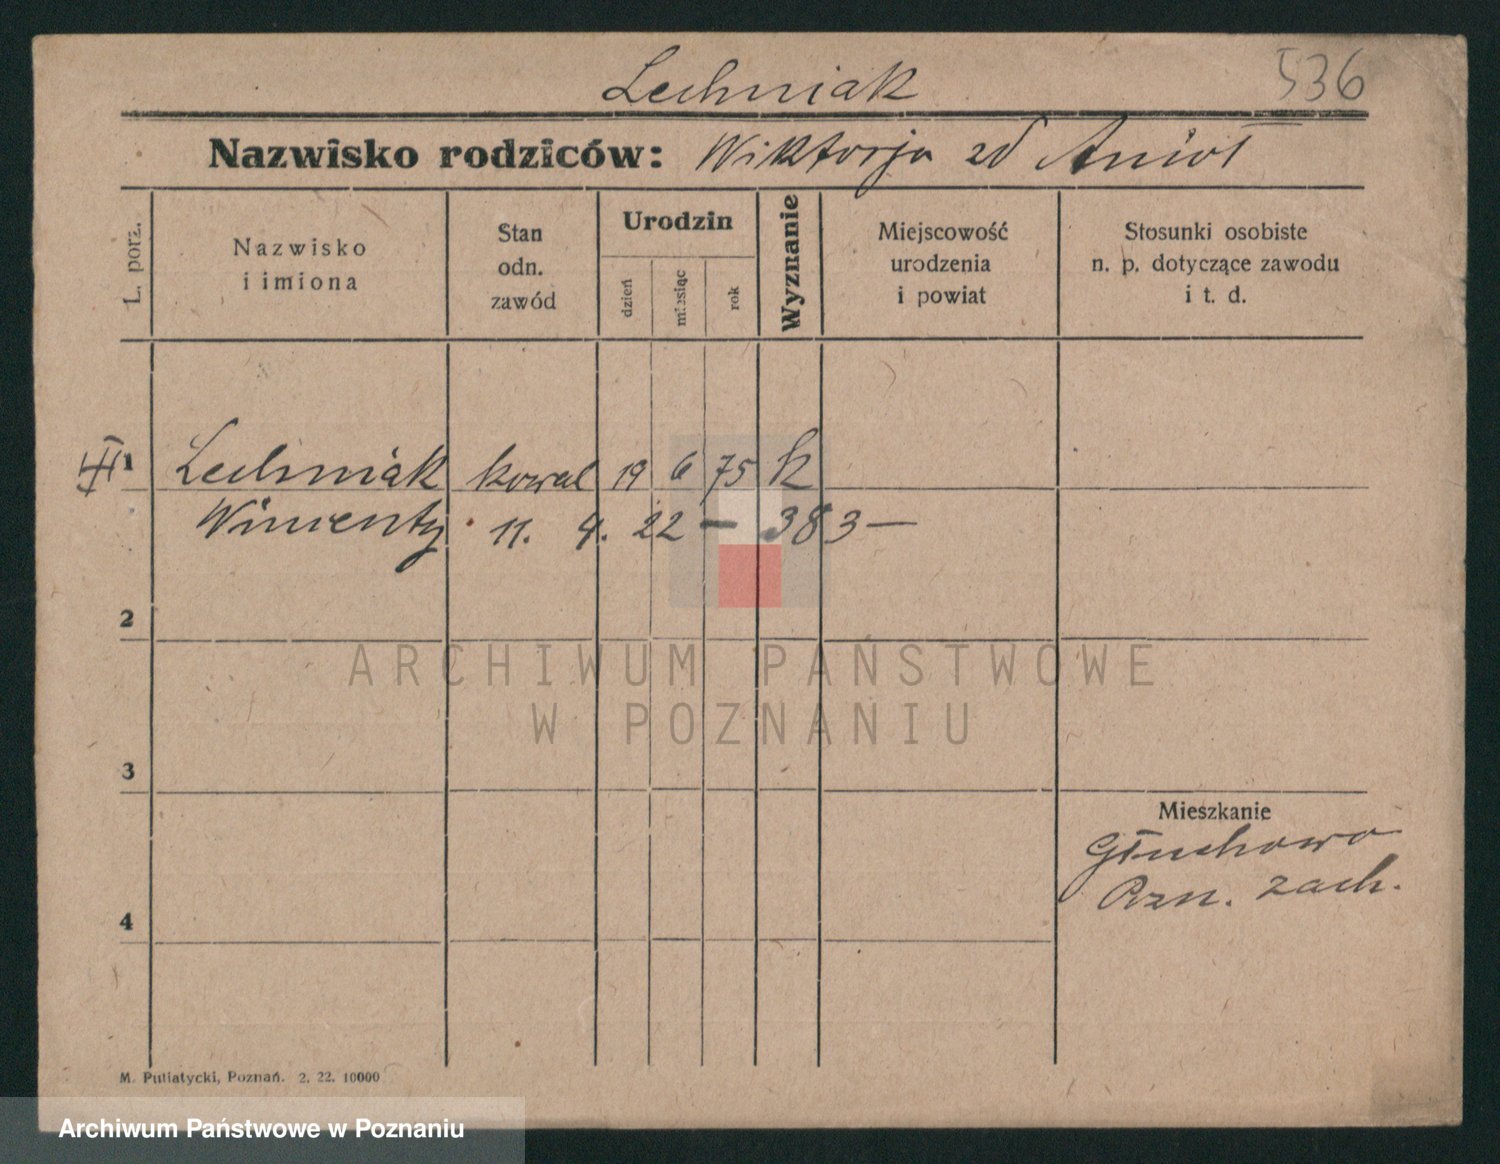 536
Lechniak
Nazwisko rodziców: Wiktorja zd Anioł
L. porz.
Nazwisko
i imiona
Stan
odn.
zawód
Urodzin
dzień
miesiąc
rok
Wyznanie
Miejscowość
urodzenia
i powiat
Stosunki osobiste
n. p. dotyczące zawodu
i t. d.
III 1 Lechniak kowal 19 6 75 k
Wincenty 11. 4. 22 — 383 —
2
3
4
Mieszkanie
Głuchowo
Pzn. zach.
ARCHIWUM PAŃSTWOWE
W POZNANIU
M. Putiatycki, Poznań. 2. 22. 10000
Archiwum Państwowe w Poznaniu